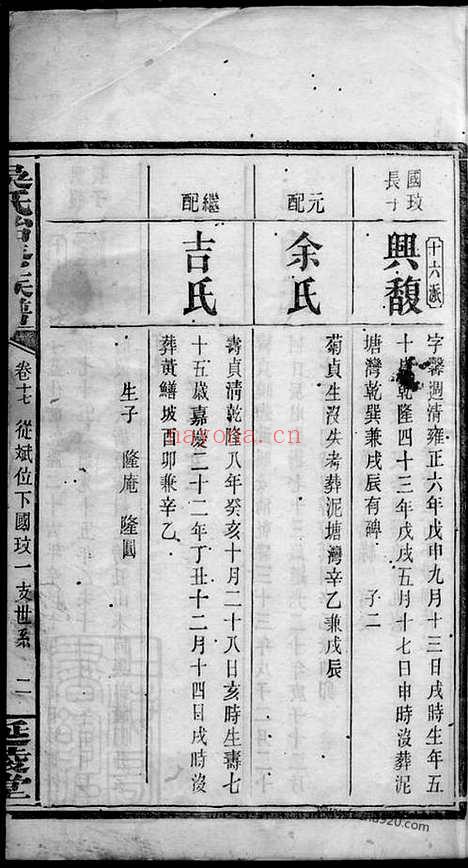 國玟長子
十六派
興馥
字馨遇清雍正六年戊申九月十三日戌時生年五
十歲乾隆四十三年戊戌五月十七日申時沒葬泥
塘灣乾巽兼戌辰有碑 子二
元配
余氏
菊貞生沒失考葬泥塘灣辛乙兼戌辰
繼配
吉氏
壽貞清乾隆八年癸亥十月二十八日亥時生壽七
十五歲嘉慶二十二年丁丑十二月十四日戌時沒
葬黃鱔坡酉卯兼辛乙
生子 隆庵 隆圓
卷十七 從斌位下國玟一支世系 二
延陵堂
nayona.cn